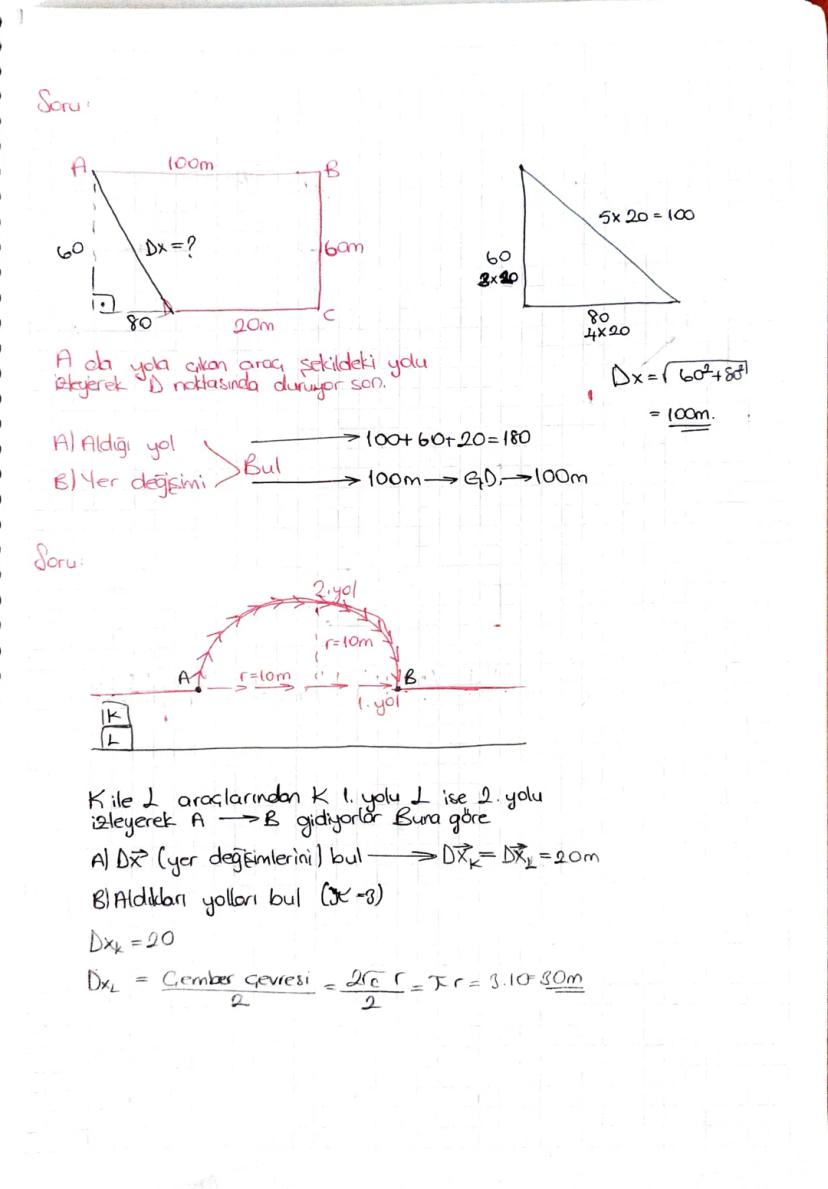 Soru:
A 100m B
60 Dx=? 60m
D
80 20m C
60
3x20
5x20=100
80
4x20
A da yola çıkan araç şekildeki yolu
izleyerek D noktasında duruyor son.
Dx=√60²+80²
= 100m.
A) Aldığı yol
B) Yer değişimi
Bul
→ 100+60+20=180
→ 100m → GD. → 100m
Soru:
2.yol
r=10m
A r=10m B
1. yol
K
L
K ile L araçlarından K 1. yolu L ise 2. yolu
izleyerek A → B gidiyorlar Buna göre
A) Dx⃗ (yer değişimlerini) bul → Dx⃗K = Dx⃗L = 20m
B) Aldıkları yolları bul (π=3)
Dxk = 20
DxL = Çember çevresi/2 = 2πr/2 = πr = 3.10=30m